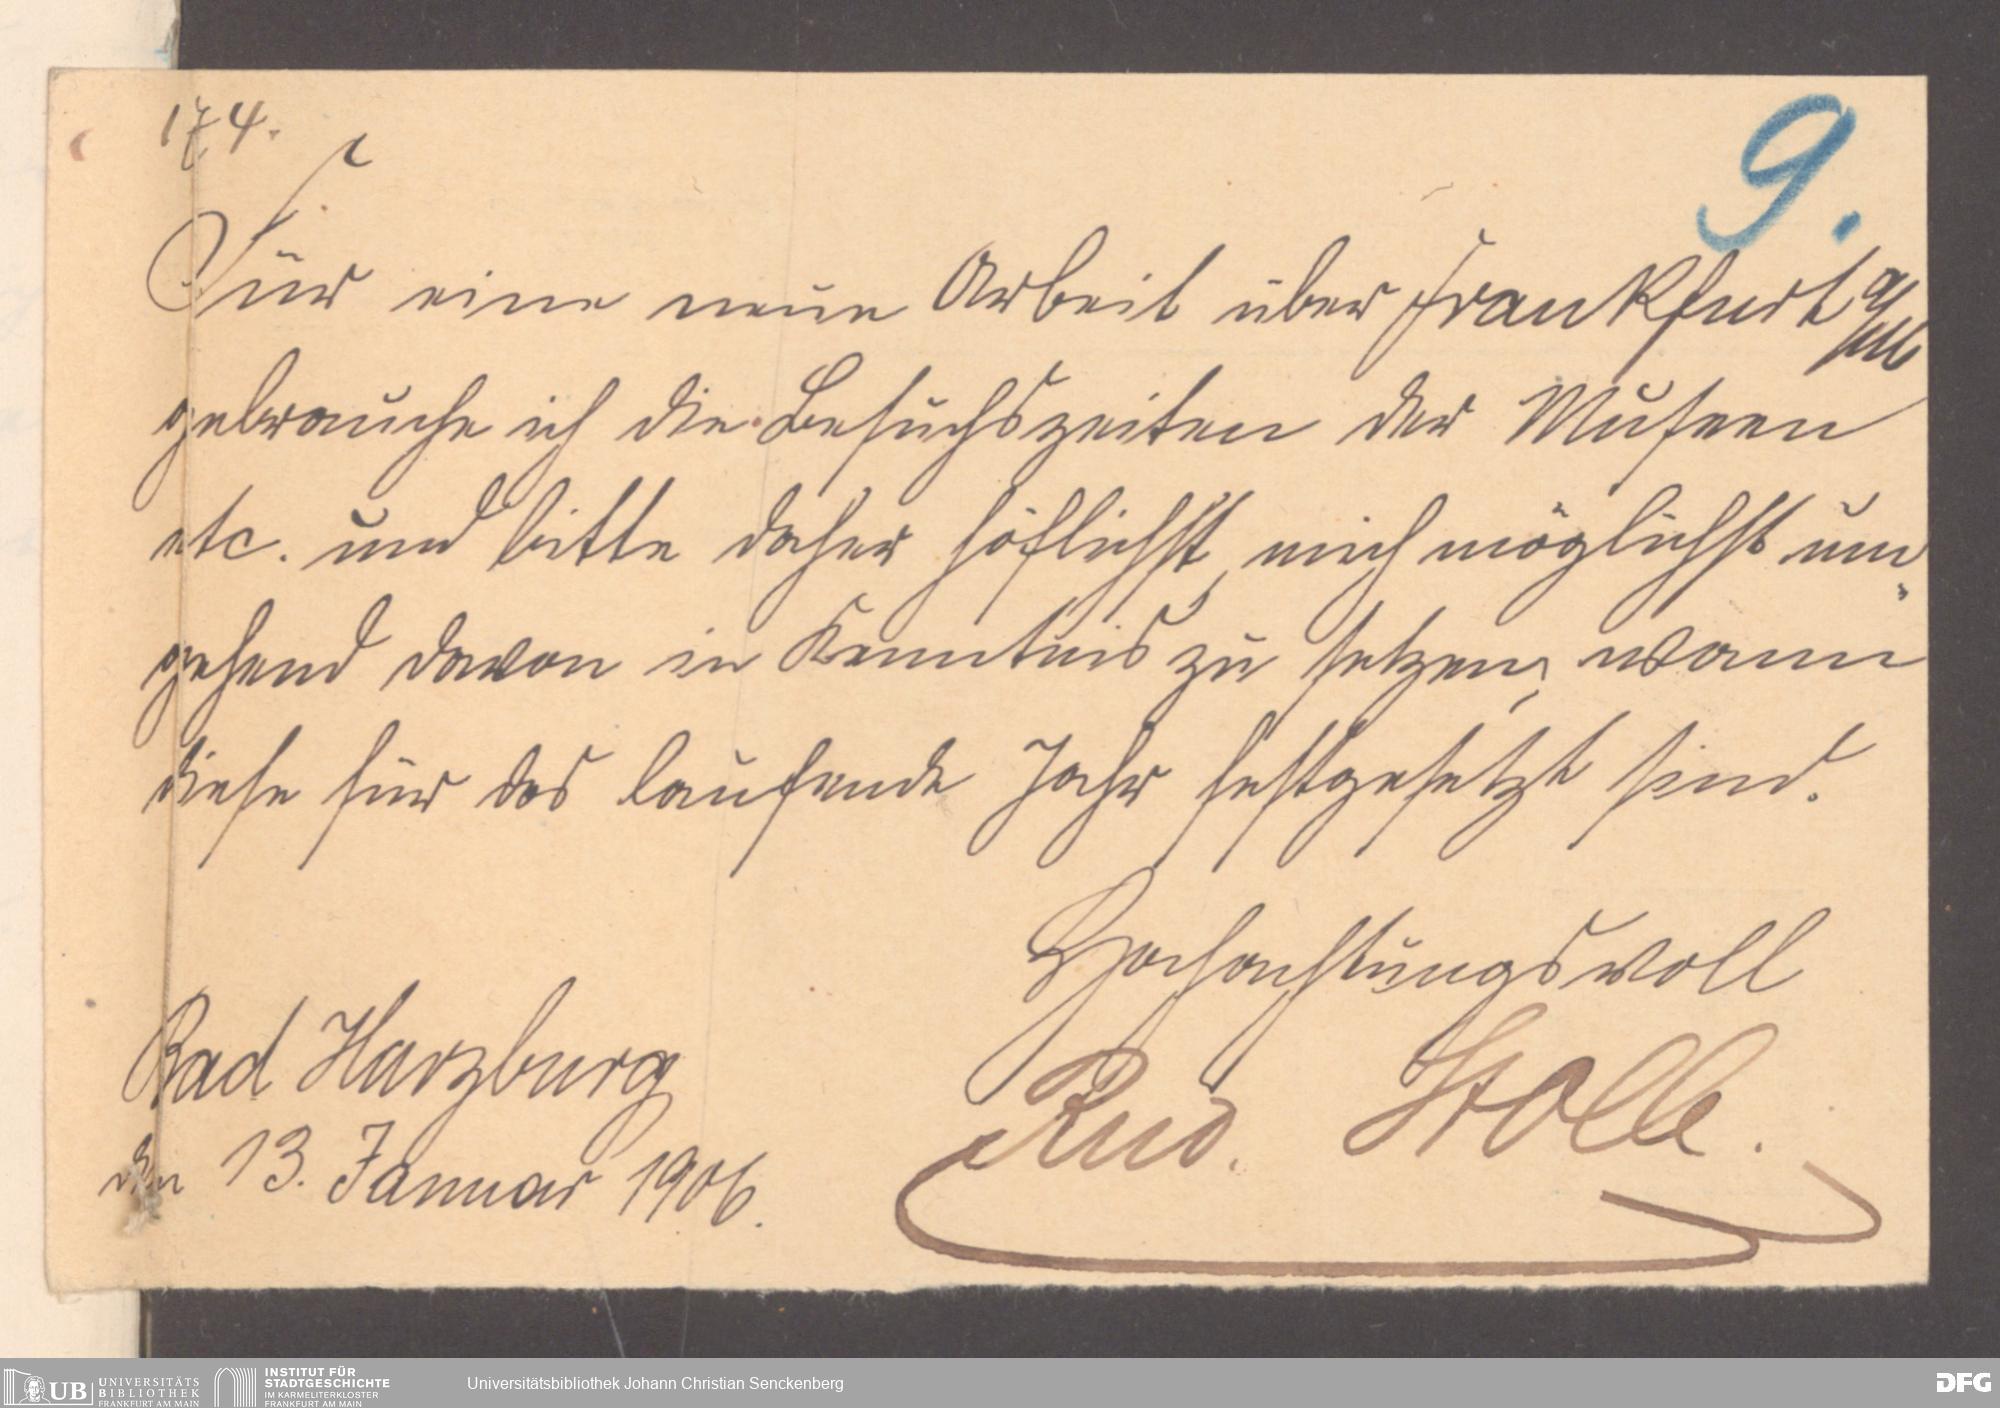 174.
9.
Für eine neue Arbeit über Frankfurt a/M
gebrauche ich die Besuchszeiten der Museen
etc. und bitte daher höflichst, mich möglichst um-
gehend davon in Kenntnis zu setzen, wann
diese für das laufende Jahr festgesetzt sind.
Hochachtungsvoll
Rud. Stolle.
Bad Harzburg
den 13. Januar 1906.
UB UNIVERSITÄTS
BIBLIOTHEK
FRANKFURT AM MAIN
INSTITUT FÜR
STADTGESCHICHTE
IM KARMELITERKLOSTER
FRANKFURT AM MAIN
Universitätsbibliothek Johann Christian Senckenberg
DFG